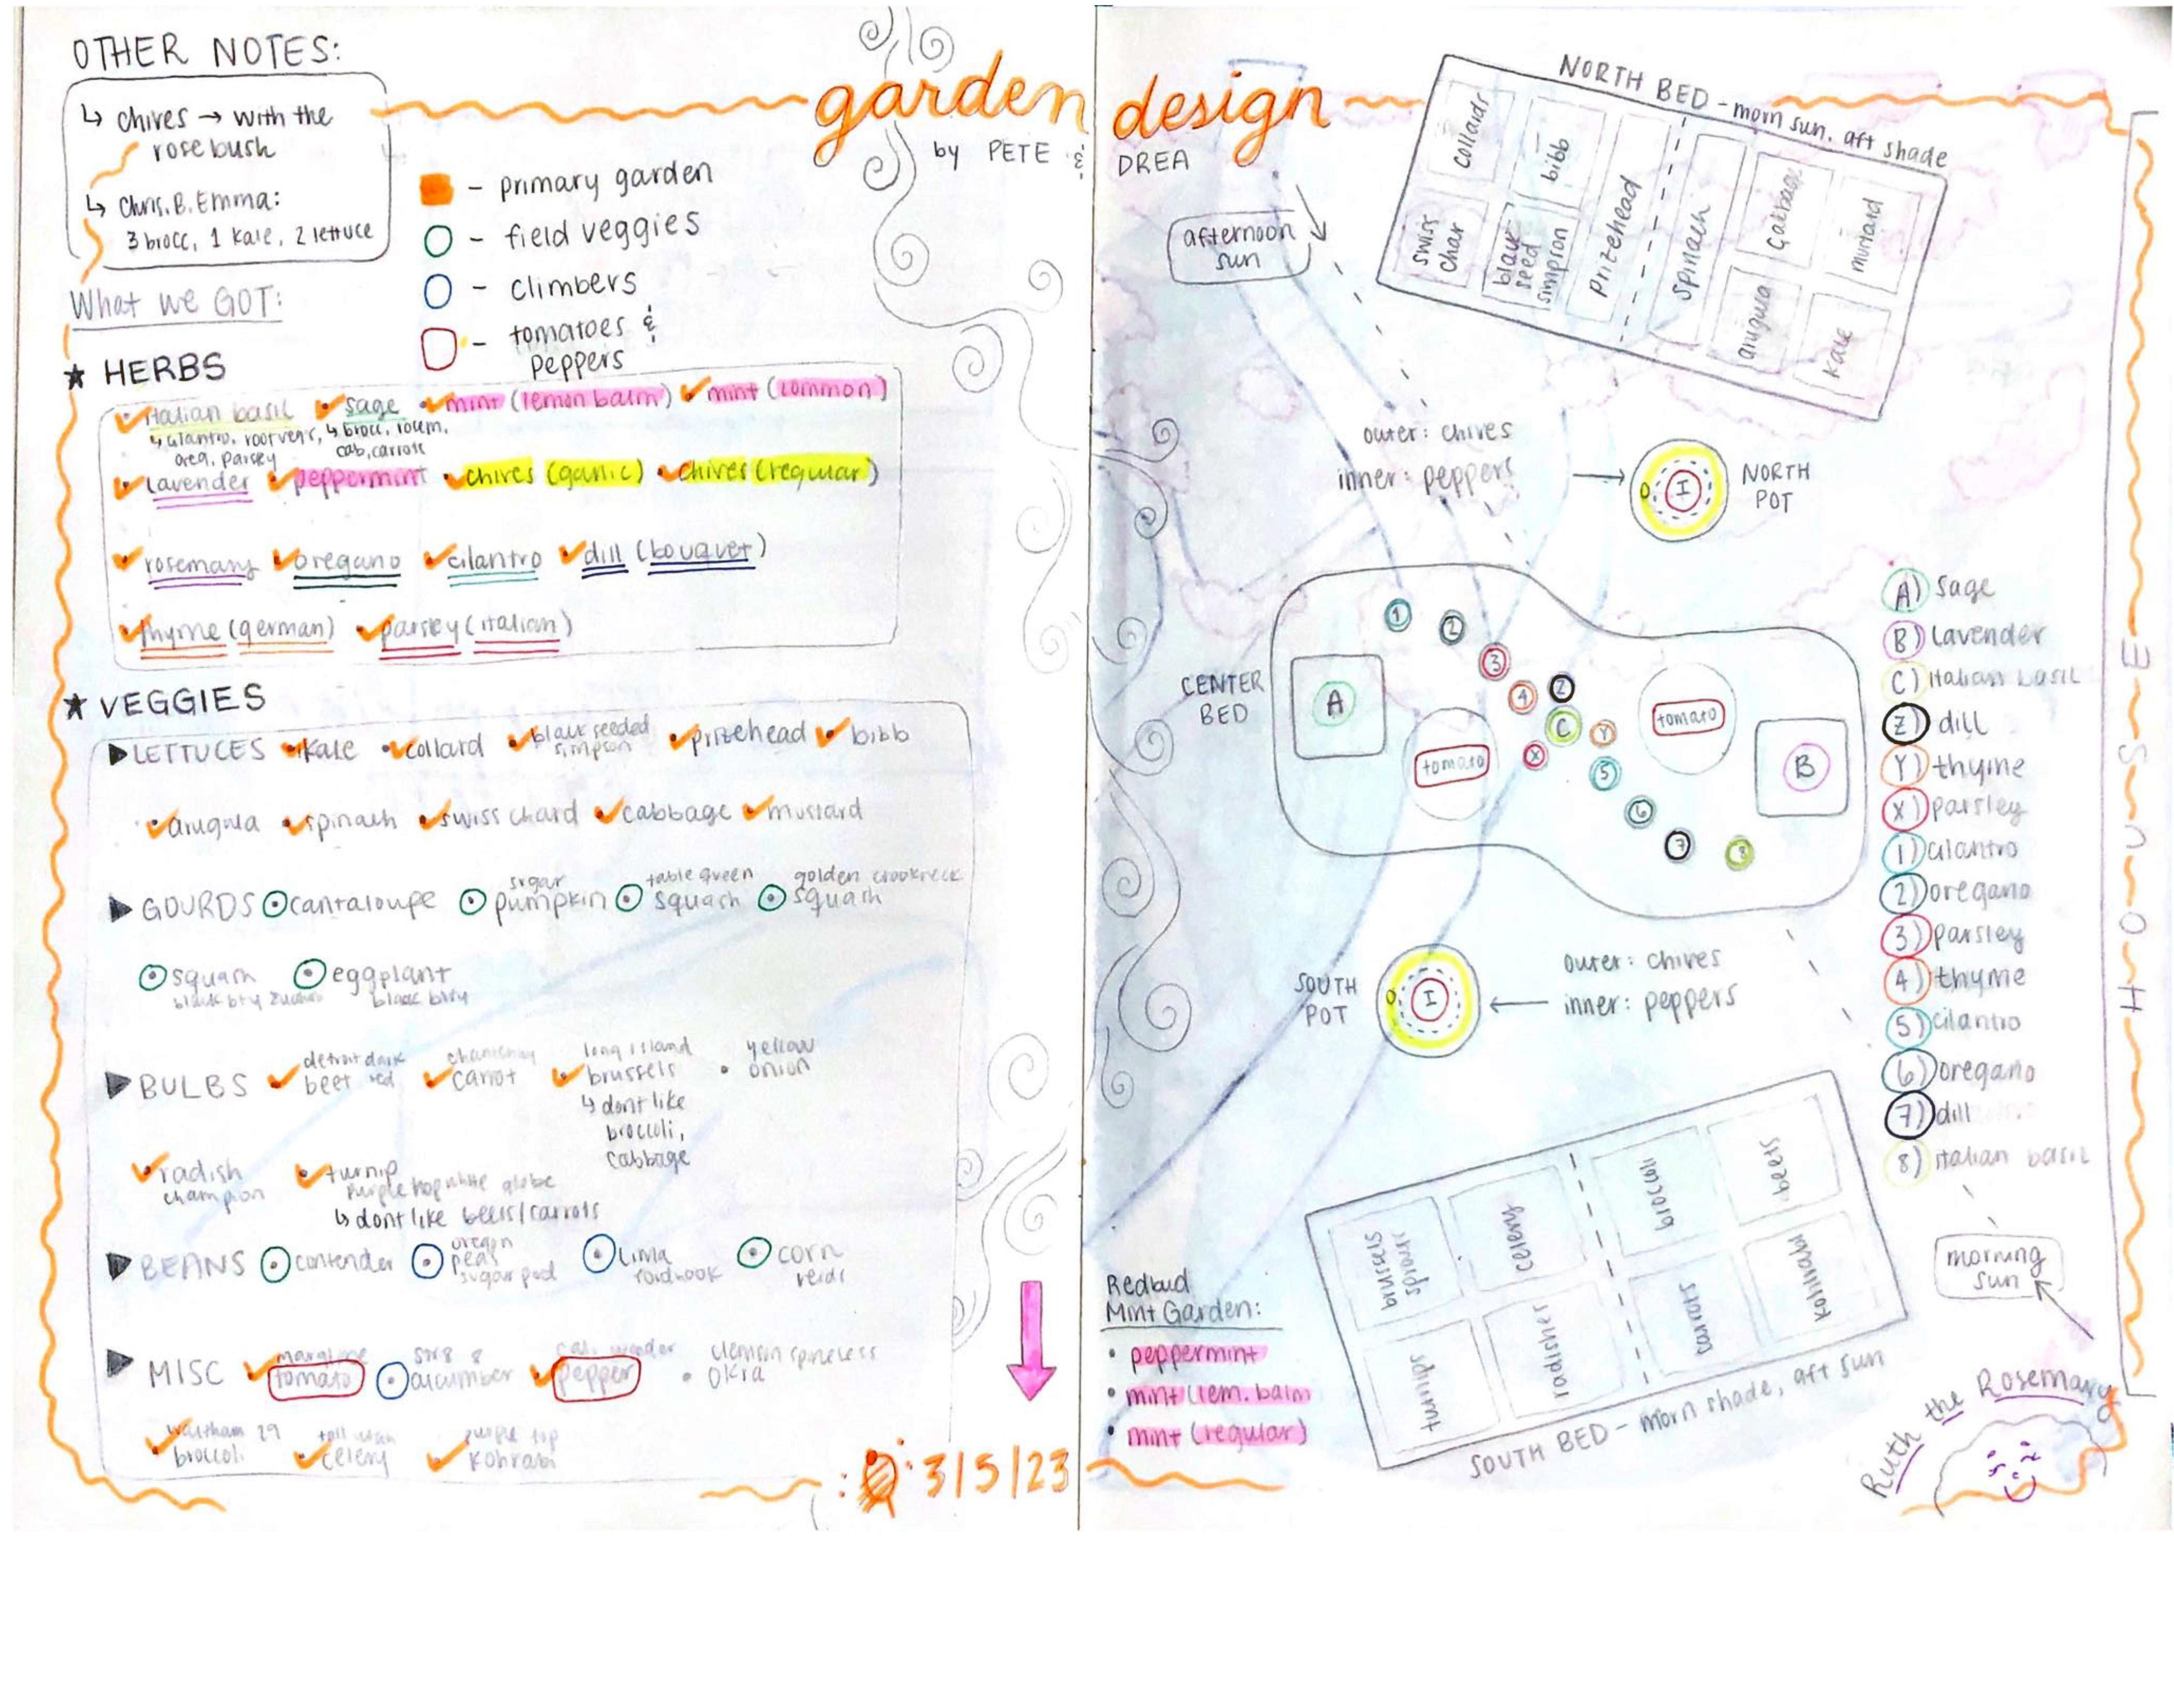 OTHER NOTES:
↳ chives → with the
rose bush
↳ Chris. B. Emma:
3 brocc, 1 kale, 2 lettuce
garden design
by PETE & DREA
- primary garden
- field veggies
- climbers
- tomatoes &
peppers
What we GOT:
★ HERBS
italian basil sage mint (lemon balm) mint (common)
↳ cilantro, root veg's, ↳ brocc, rosem,
oreg, parsley cab, carrots
lavender peppermint chives (garlic) chives (regular)
rosemary oregano cilantro dill (bouquet)
thyme (german) parsley (italian)
★ VEGGIES
▶ LETTUCES kale collard black seeded simpson prizehead bibb
arugula spinach swiss chard cabbage mustard
▶ GOURDS cantaloupe sugar pumpkin table queen squash golden crookneck squash
squash eggplant
black bty zucchini black bty
▶ BULBS detroit dark beet red chantenay carrot long island brussels yellow onion
↳ dont like
broccoli,
cabbage
radish turnip
champion purple top white globe
↳ dont like beets/carrots
▶ BEANS contender oregon peas sugar pod lima fordhook corn reids
▶ MISC marglobe tomato SMR 8 cucumber cali. wonder pepper clemson spineless okra
waltham 29 tall utah purple top
broccoli celery kohrabi
3/5/23
afternoon
sun
NORTH BED - morn sun, aft shade
collards
bibb
swiss
char
black
seed
simpson
Prizehead
spinach
cabbage
mustard
arugula
kale
outer: chives
inner: peppers
I
NORTH
POT
CENTER
BED
A
1
2
3
4
Z
C
Y
X
5
6
7
8
tomato
tomato
B
A) sage
B) lavender
C) italian basil
Z) dill
Y) thyme
X) parsley
1) cilantro
2) oregano
3) parsley
4) thyme
5) cilantro
6) oregano
7) dill
8) italian basil
H-O-U-S-E
SOUTH
POT
I
outer: chives
inner: peppers
brussels
sprouts
celery
broccoli
beets
turnips
radishes
carrots
kohlrabi
SOUTH BED - morn shade, aft sun
morning
sun
Redbud
Mint Garden:
• peppermint
• mint (lem. balm
• mint (regular)
Ruth the Rosemary